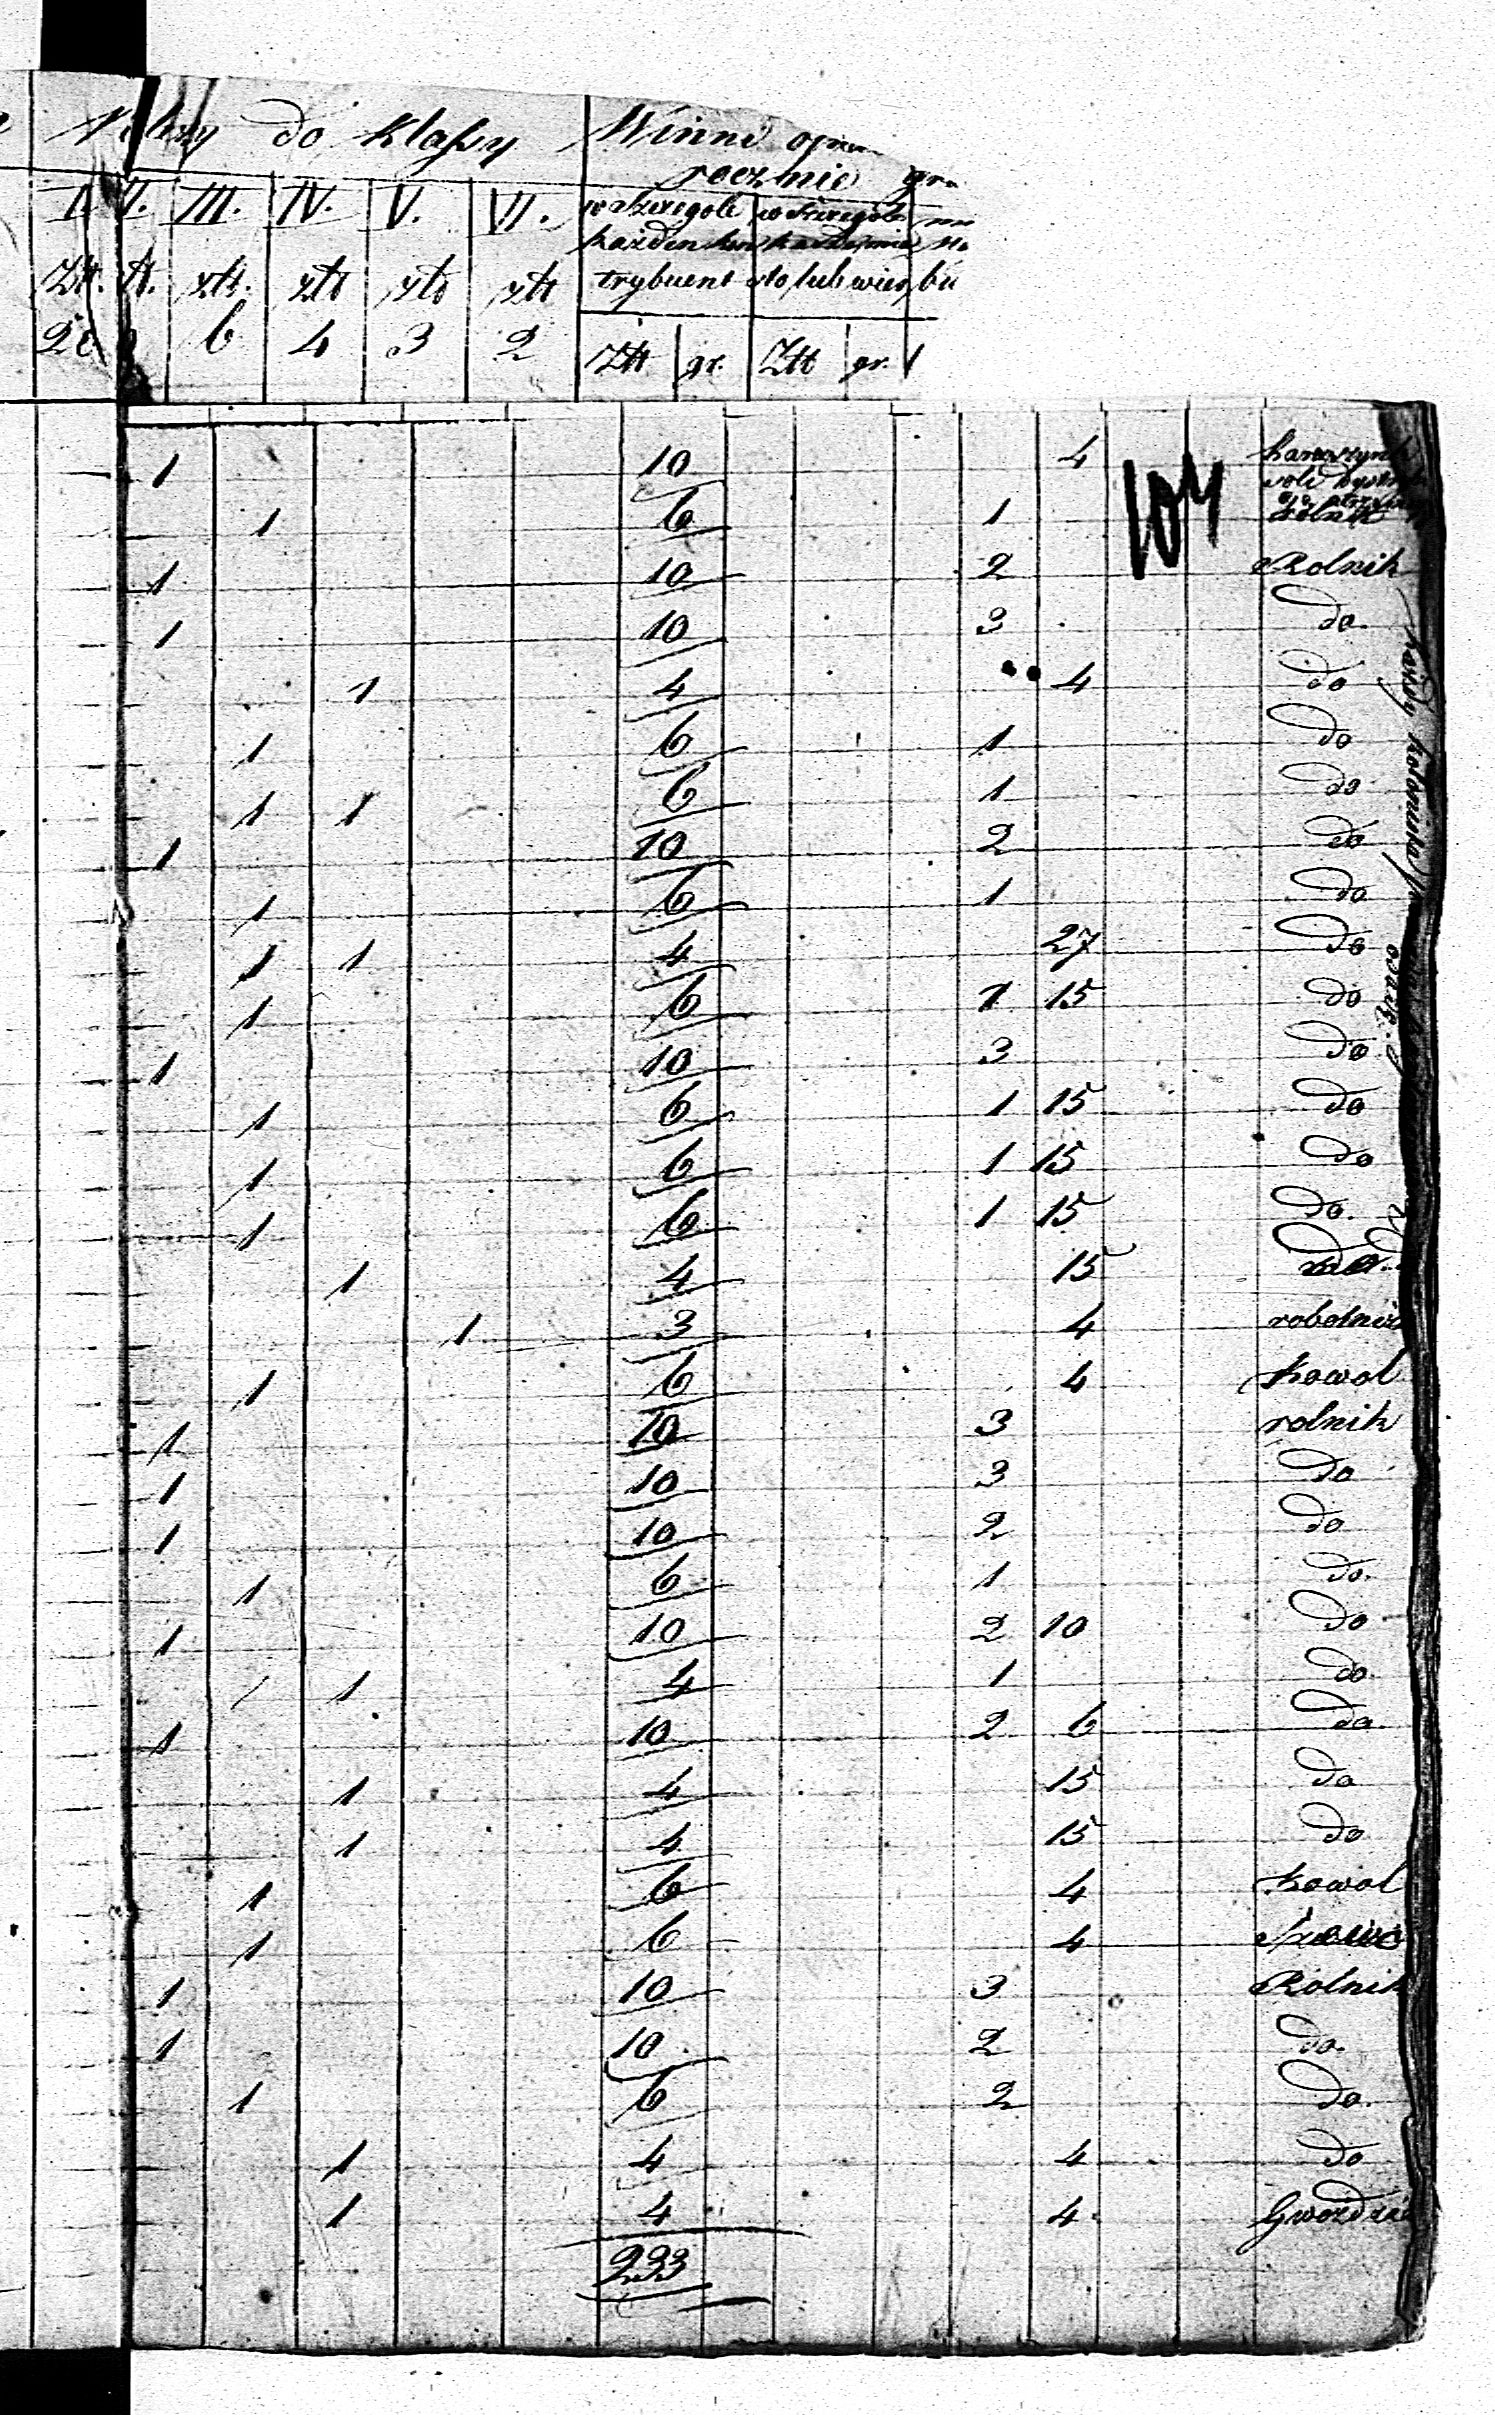 do Klassy Winni
rocznie
I. II. III. IV. V. VI. w szczególe w szczególe
każden kon
trybuent
Zł. zł. złt złt złt
20 6 4 3 2 Złt gr. Złt gr.
1 10 4
104
1 6 1 rolnik
1 10 2 Rolnik
1 10 3 do
1 4 4 do
1 6 1 do
1 1 6 1 do
1 10 2 do
1 6 1 do
1 1 4 27 do
1 6 1 15 do
1 10 3 do
1 6 1 15 do
1 6 1 15 do
1 6 1 15 do.
1 4 15
1 3 4 robotnik
1 6 4 Kowal
1 10 3 rolnik
1 10 3 do
1 10 2 do
1 6 1 do.
1 10 2 10 do
1 4 1 do.
1 10 2 6 do.
1 4 15 do
1 4 15 do
1 6 4 Kowal
1 6 4
1 10 3 Rolnik
1 10 2 do.
1 6 2 do.
1 4 4 do
1 4 4
233
każdy kolonista